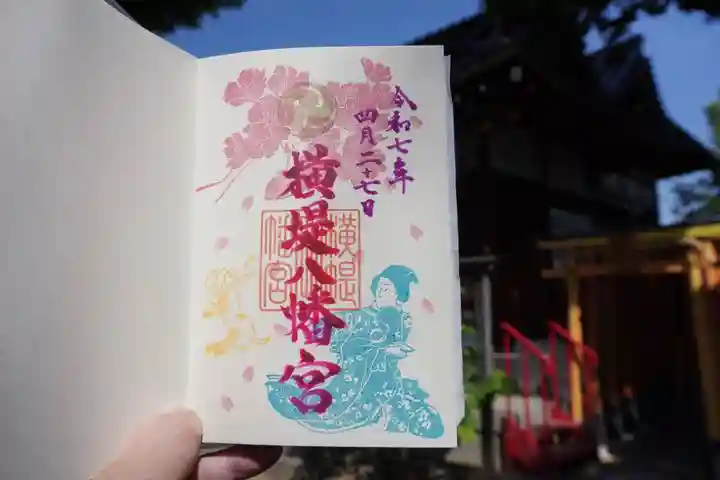 令和七年
四月二十七日
横堤八幡宮
横堤
八幡宮